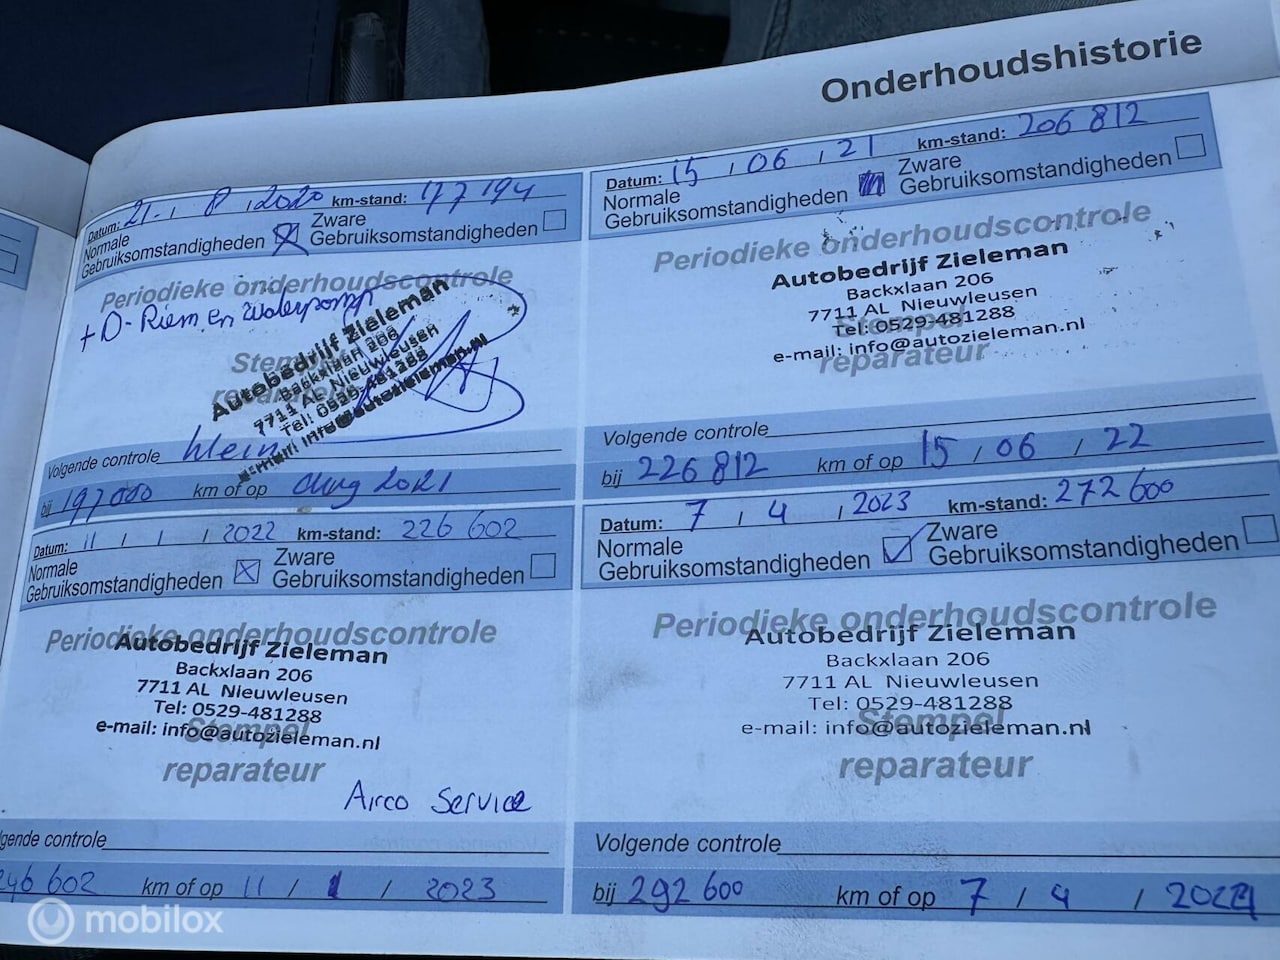 Onderhoudshistorie
Datum: 21 / 8 / 2020 km-stand: 177 194
Normale Gebruiksomstandigheden
Zware Gebruiksomstandigheden
Periodieke onderhoudscontrole
+ D-Riem en waterpomp
Stempel
reparateur
Autobedrijf Zieleman
Backxlaan 206
7711 AL Nieuwleusen
Tel: 0529-481288
e-mail: info@autozieleman.nl
Volgende controle klein
bij 197000 km of op aug 2021
Datum: 15 / 06 / 21 km-stand: 206 812
Normale Gebruiksomstandigheden
Zware Gebruiksomstandigheden
Periodieke onderhoudscontrole
Autobedrijf Zieleman
Backxlaan 206
7711 AL Nieuwleusen
Stempel
Tel: 0529-481288
e-mail: info@autozieleman.nl
reparateur
Volgende controle
bij 226 812 km of op 15 / 06 / 22
Datum: 11 / 1 / 2022 km-stand: 226 602
Normale Gebruiksomstandigheden
Zware Gebruiksomstandigheden
Periodieke onderhoudscontrole
Autobedrijf Zieleman
Backxlaan 206
7711 AL Nieuwleusen
Tel: 0529-481288
Stempel
e-mail: info@autozieleman.nl
reparateur
Airco Service
lgende controle
246 602 km of op 11 / 1 / 2023
Datum: 7 / 4 / 2023 km-stand: 272 600
Normale Gebruiksomstandigheden
Zware Gebruiksomstandigheden
Periodieke onderhoudscontrole
Autobedrijf Zieleman
Backxlaan 206
7711 AL Nieuwleusen
Tel: 0529-481288
Stempel
e-mail: info@autozieleman.nl
reparateur
Volgende controle
bij 292 600 km of op 7 / 4 / 2024
mobilox